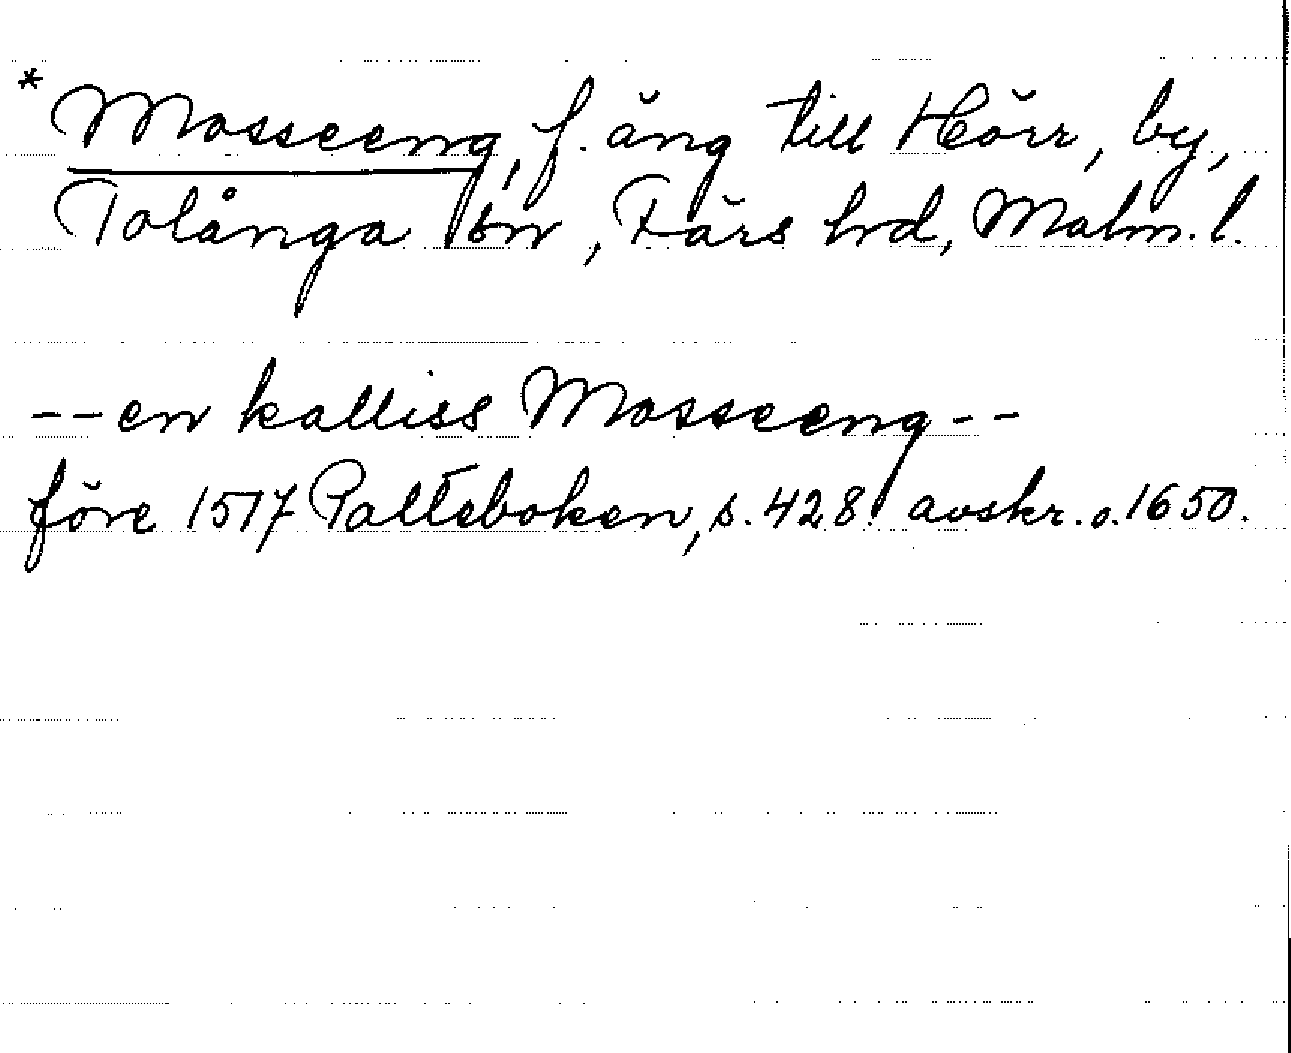 * Mosseeng, f. äng till Hörr, by,
Tolånga sn, Färs hd, Malm. l.
-- en kalliss Mosseeng --
före 1517 Palteboken, s. 428. avskr. o. 1650.